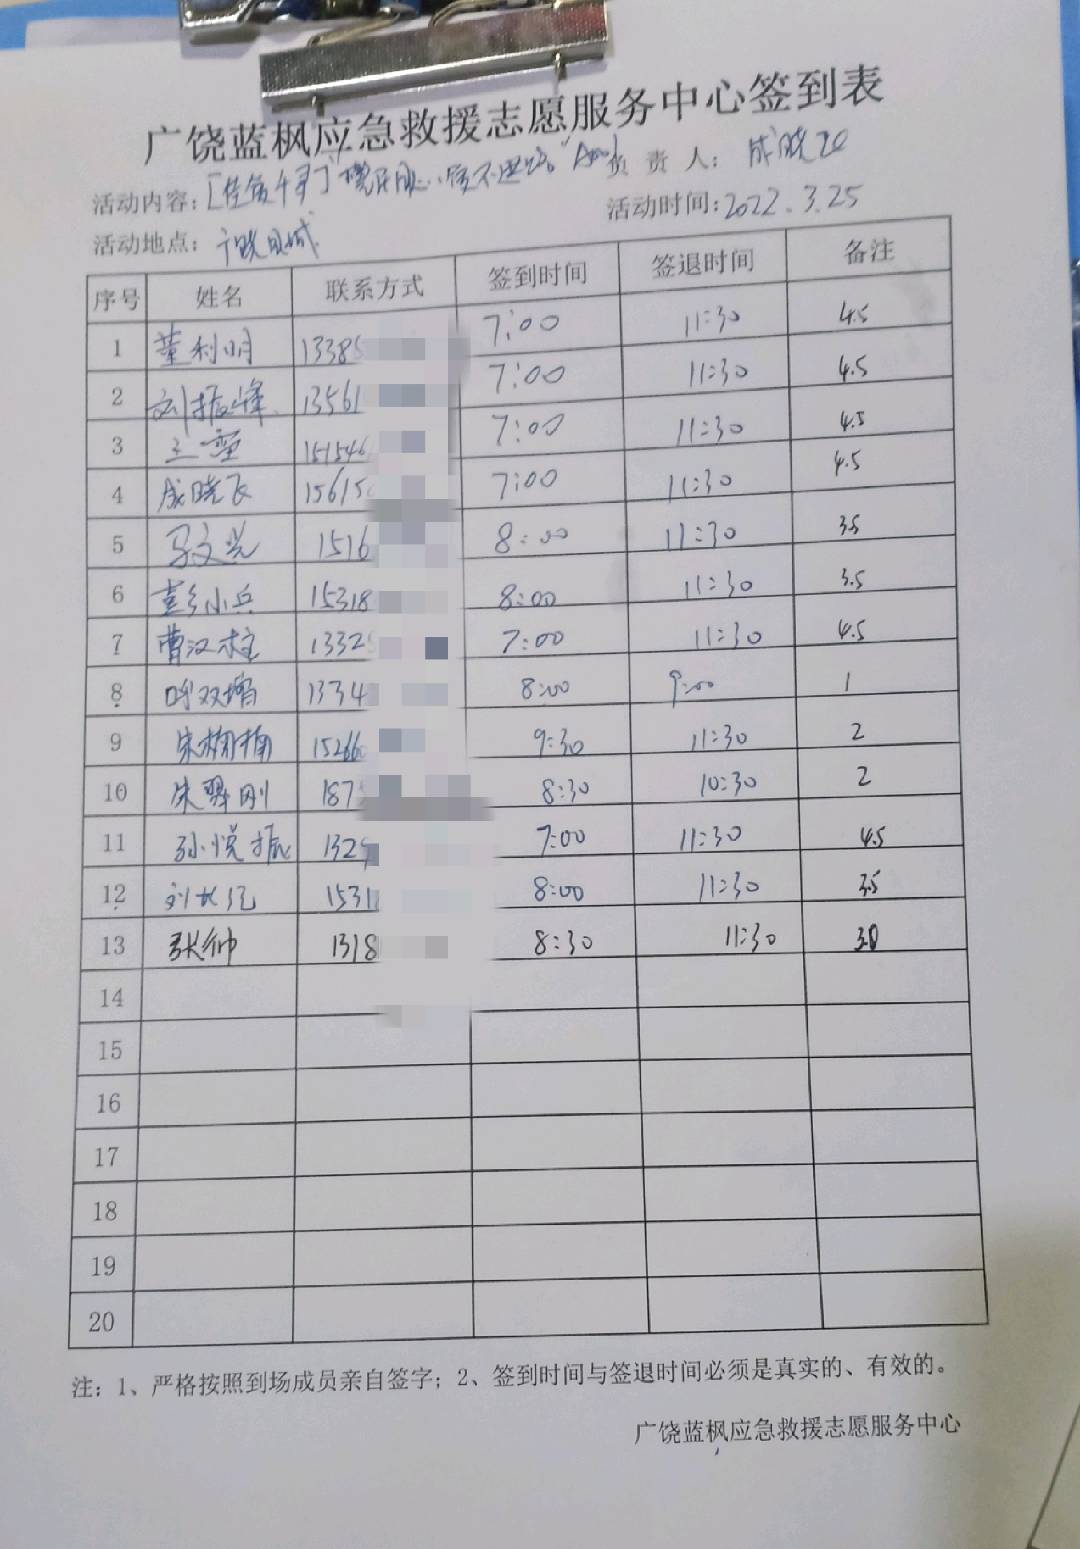 广饶蓝枫应急救援志愿服务中心签到表
活动内容: 负责人: 成晓飞
活动时间: 2022.3.25
活动地点: 广饶县城
序号 姓名 联系方式 签到时间 签退时间 备注
1 董利明 13385 7:00 11:30 4.5
2 刘振峰 13561 7:00 11:30 4.5
3 151546 7:00 11:30 4.5
4 成晓飞 15615 7:00 11:30 4.5
5 马文光 1516 8:00 11:30 3.5
6 彭小兵 15318 8:00 11:30 3.5
7 曹汉柱 1332 7:00 11:30 4.5
8 呼双增 1334 8:00 9:00 1
9 宋楠楠 15266 9:30 11:30 2
10 刚 187 8:30 10:30 2
11 孙悦振 132 7:00 11:30 4.5
12 刘 1531 8:00 11:30 3.5
13 张帅 1318 8:30 11:30
14
15
16
17
18
19
20
注: 1、严格按照到场成员亲自签字; 2、签到时间与签退时间必须是真实的、有效的。
广饶蓝枫应急救援志愿服务中心